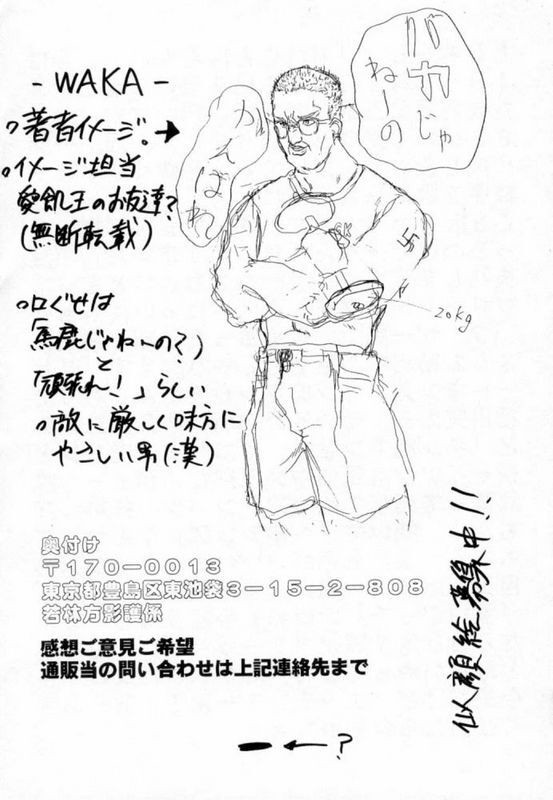 バカじゃ
ねーの
がんばれ
- WAKA -
○著者イメージ。→
○イメージ担当
愛飢王のお友達?
(無断転載)
○口ぐせは
「馬鹿じゃねーの?」
と
「頑張れ!」らしい
○敵に厳しく味方に
やさしい男(漢)
20kg
似顔絵募集中!!
奥付け
〒170-0013
東京都豊島区東池袋3-15-2-808
若林方影護係
感想ご意見ご希望
通販当の問い合わせは上記連絡先まで
←?